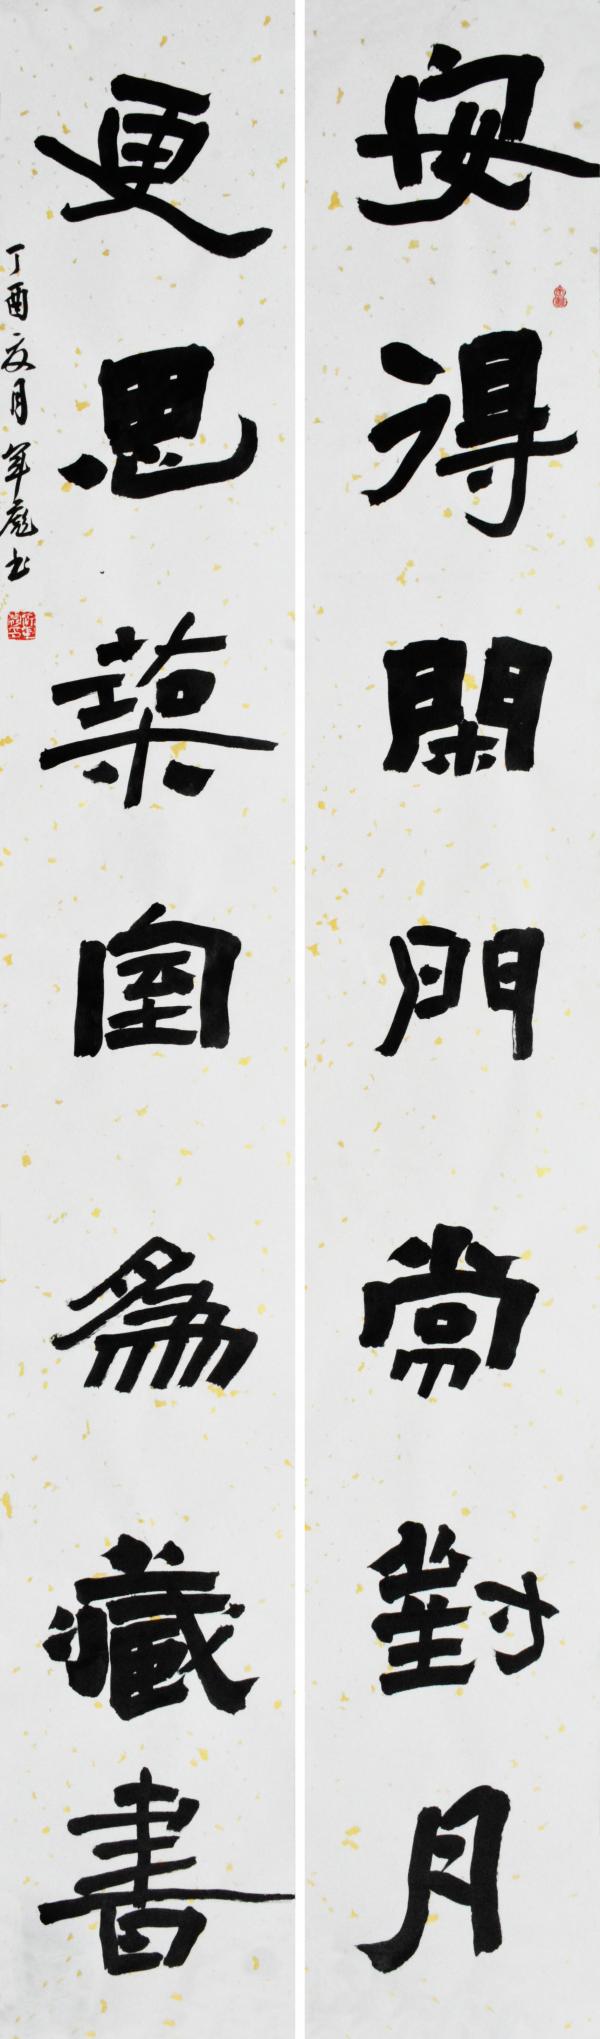 安得閑門常對月
更思築室為藏書
丁酉夏月軍彪书